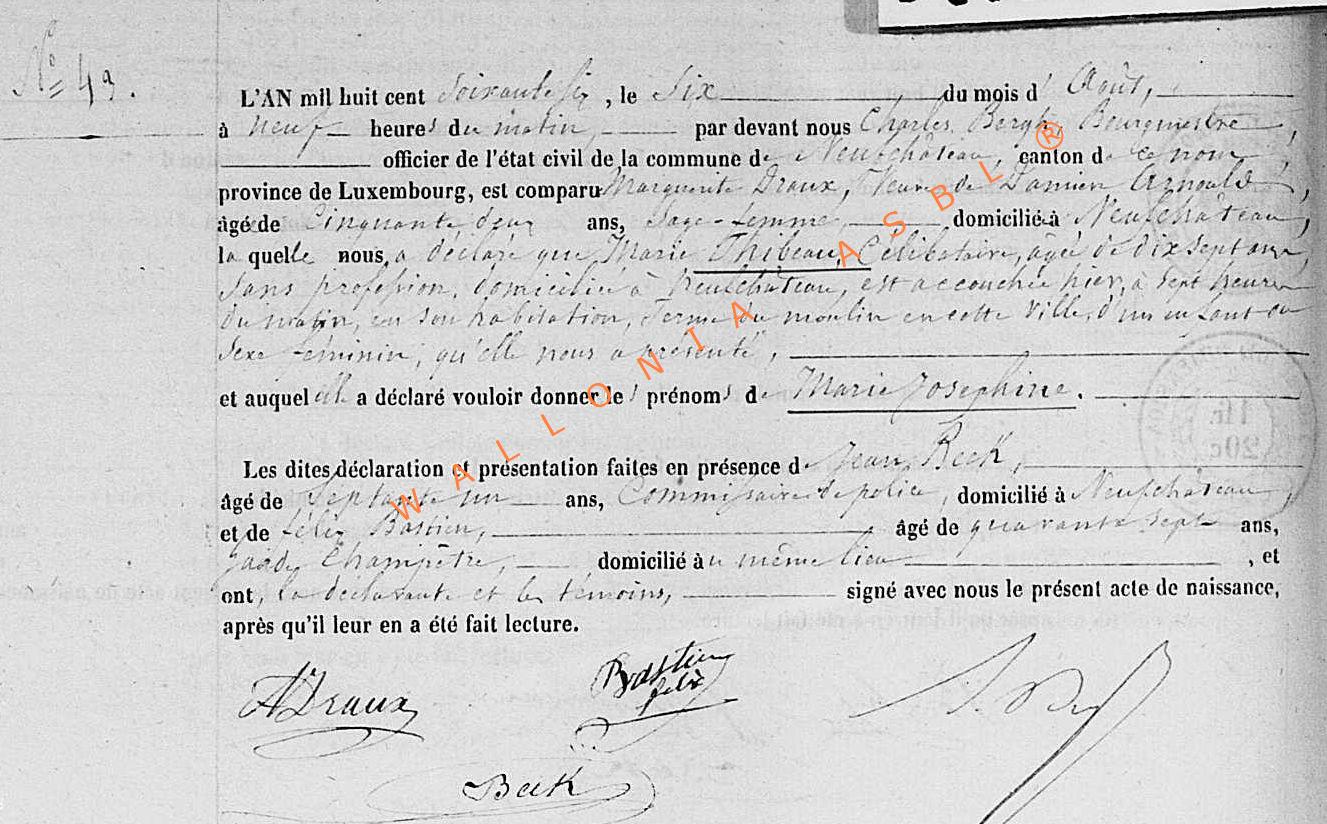 N° 43.
L'AN mil huit cent Soixante six, le Six du mois d'Août,
à neuf heures du matin, par devant nous Charles Bergh, Bourgmestre,
officier de l'état civil de la commune de Neufchâteau, canton de ce nom,
province de Luxembourg, est comparu Marguerite Draux, Veuve de Damien Arnould,
âgé de Cinquante deux ans, Sage-femme, domiciliée à Neufchâteau,
la quelle nous a déclaré que Marie Thibeau, Célibataire, agée de dix sept ans,
sans profession, domiciliée à Neufchâteau, est accouchée hier, à sept heures
du matin, en son habitation, ferme du moulin en cette Ville, d'un enfant du
sexe féminin, qu'elle nous a présenté,
et auquel elle a déclaré vouloir donner les prénoms de Marie Josephine.
Les dites déclaration et présentation faites en présence de Jean Beck,
âgé de septante un ans, Commissaire de police, domicilié à Neufchateau
et de felix Bastien, âgé de quarante sept ans,
garde Champêtre, domicilié au même lieu, et
ont, la déclarante et les témoins, signé avec nous le présent acte de naissance,
après qu'il leur en a été fait lecture.
Draux
Bastien
felix
Beck
WALLONIA ASBL ®
1 fr.
20 c